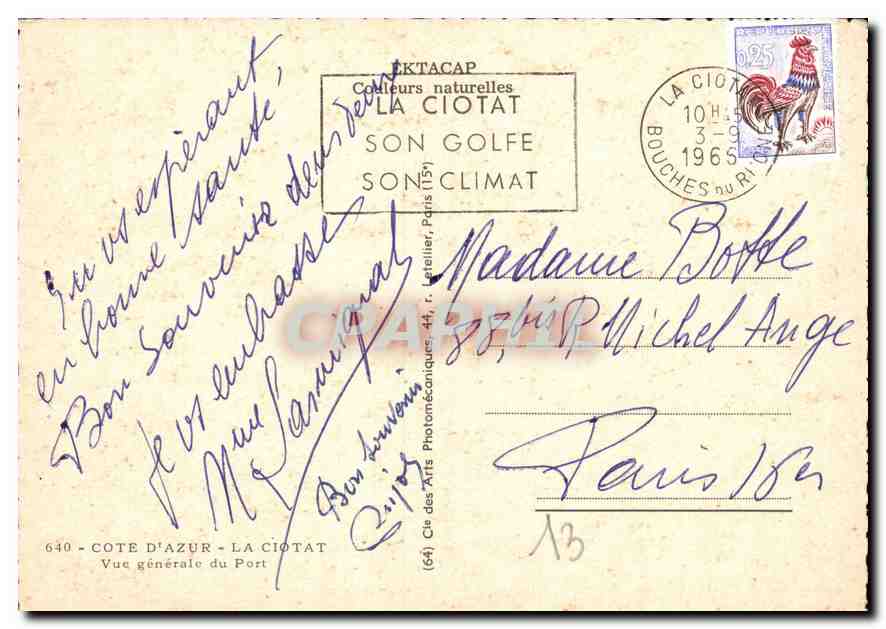 EKTACAP
Couleurs naturelles
LA CIOTAT
SON GOLFE
SON CLIMAT
0,25
LA CIOTAT
10H45
3-9
1965
BOUCHES DU RHONE
En vs espérant
en bonne santé,
Bon Souvenir
Je vs embrasse
Mme
Bon souvenir
Madame Botte
bis R. Michel Ange
Paris 16er
13
640 - COTE D'AZUR - LA CIOTAT
Vue générale du Port
(64) Cie des Arts Photomécaniques, 44, r. Letellier, Paris (15e)
CPARHIL